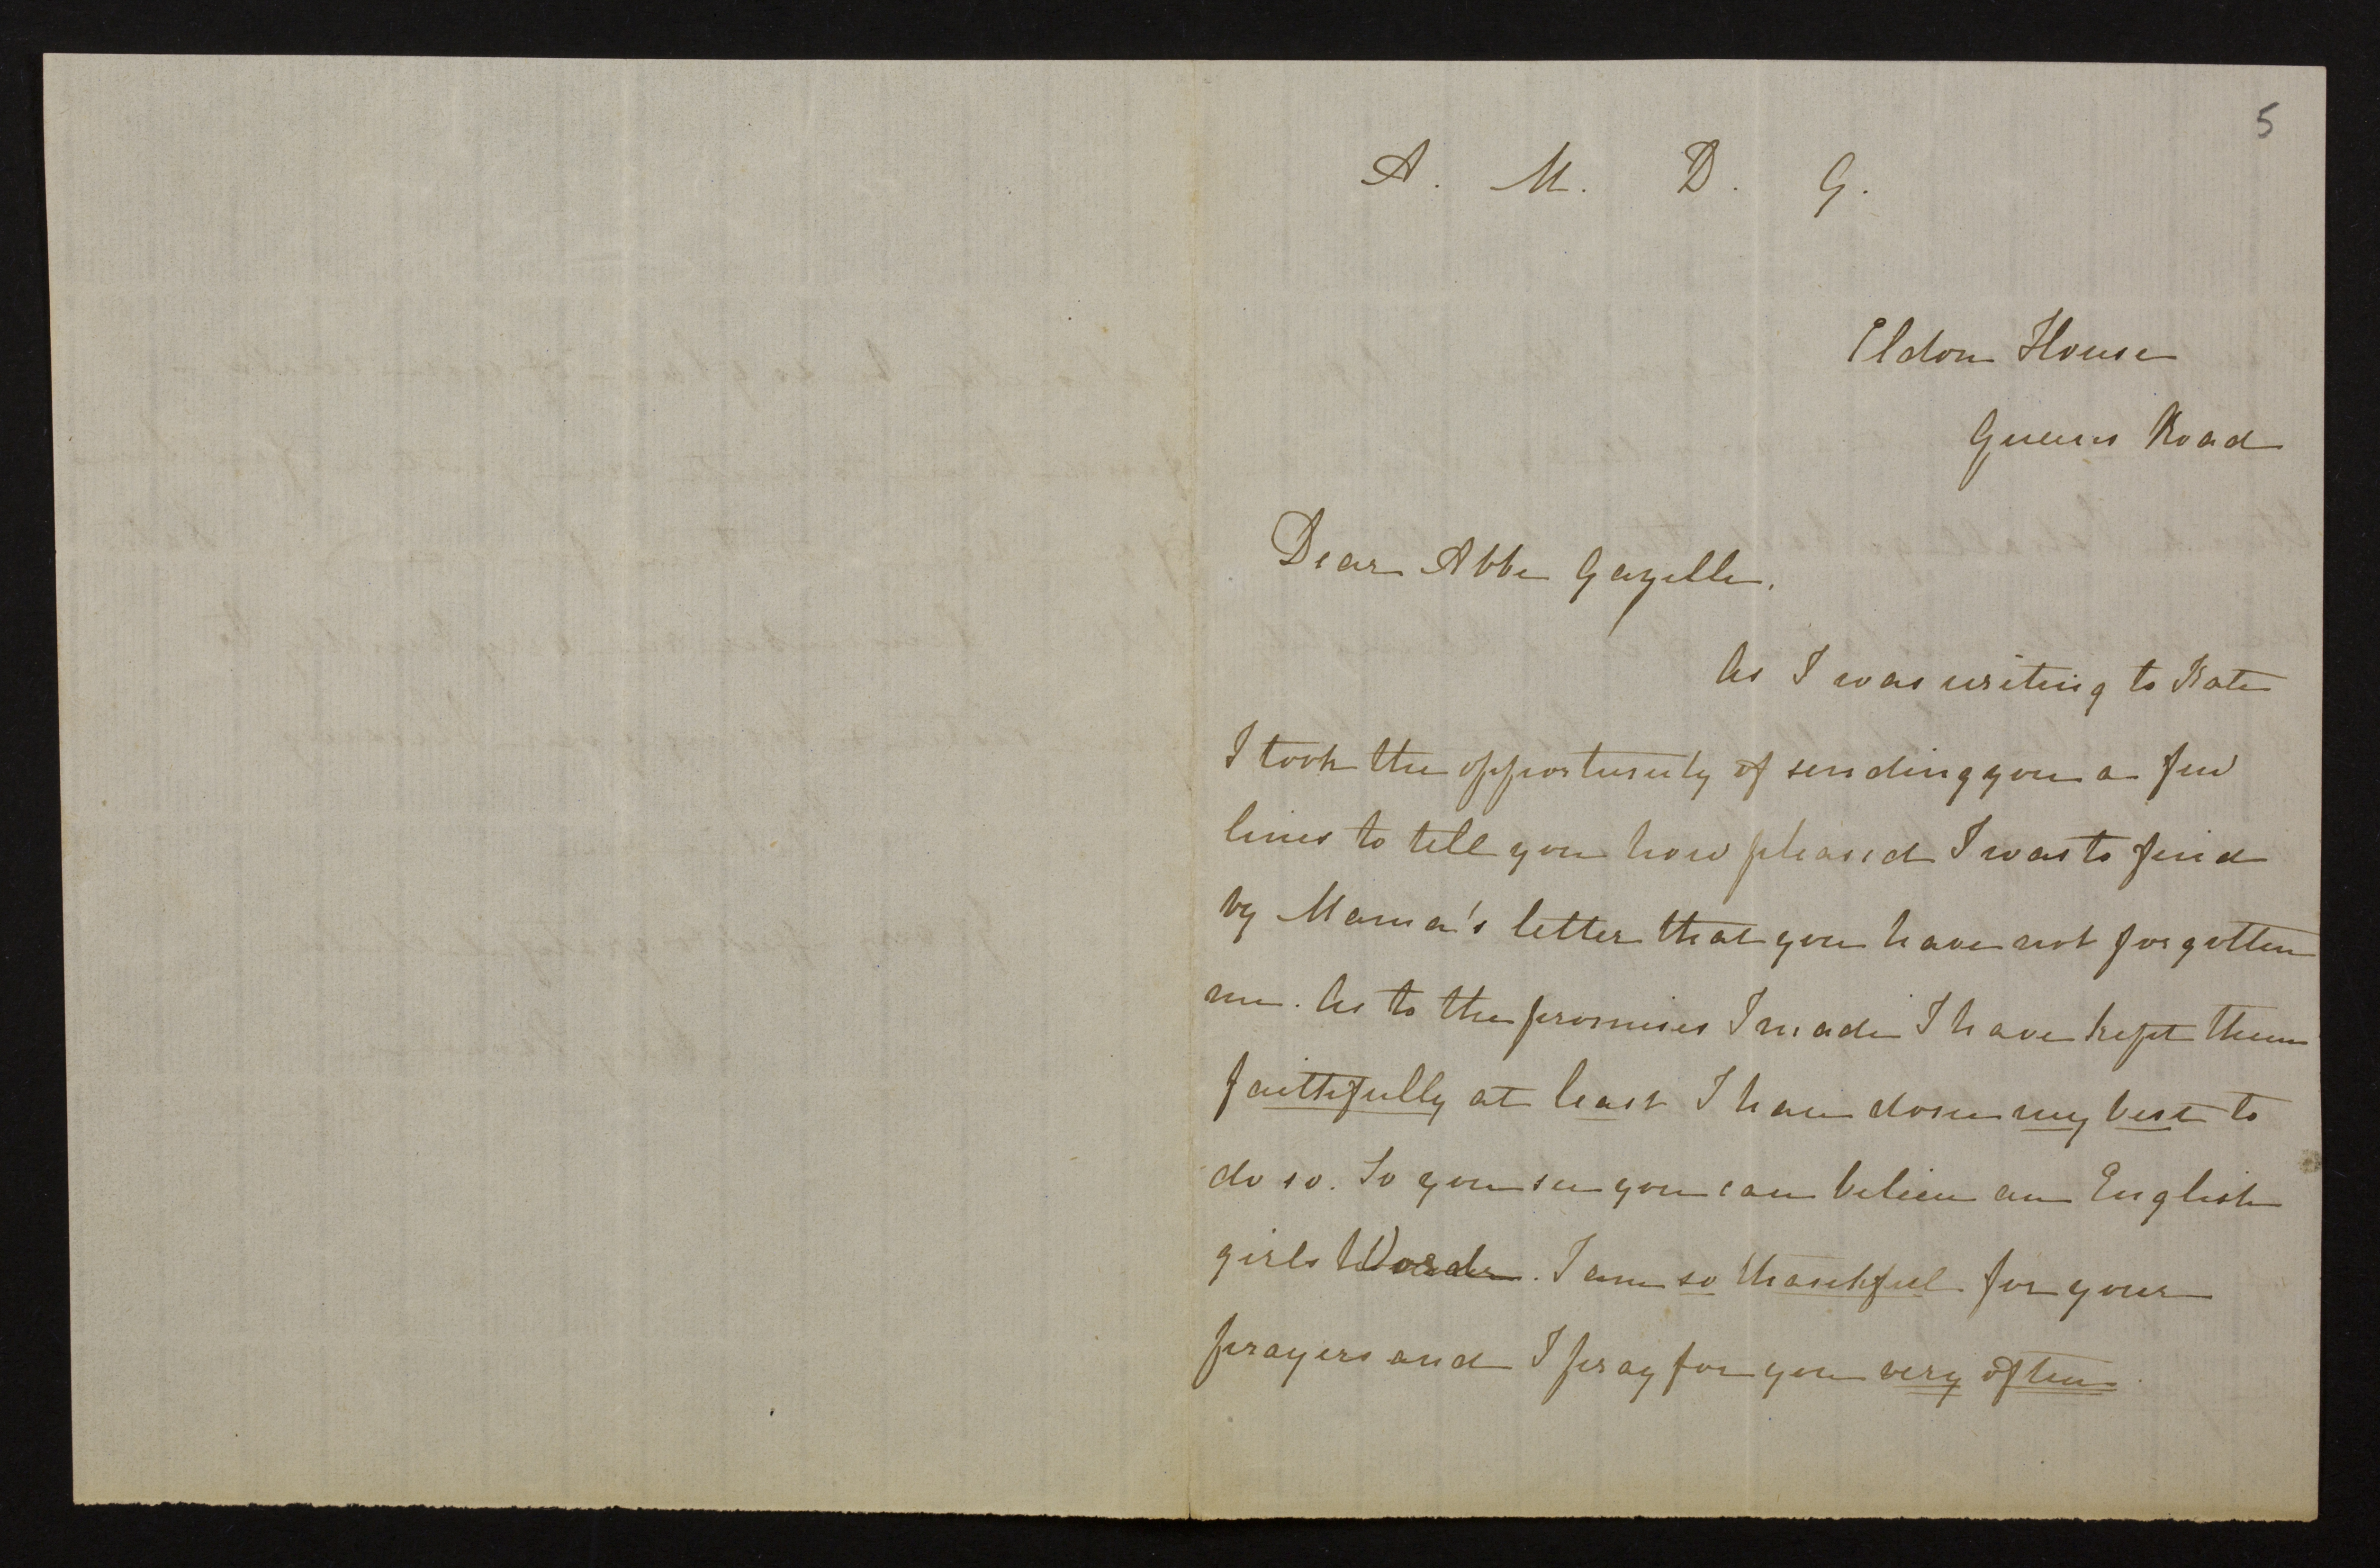 5
A. M. D. G.
Eldon House
Queens Road
Dear Abbe Gazelle.
As I was writing to Kate
I took the opportunity of sending you a few
lines to tell you how pleased I was to find
by Mama's letter that you have not forgotten
me. As to the promises I made I have kept them
faithfully at least I have done my best to
do so. So you see you can believe an English
girls Word. I am so thankful for your
prayers and I pray for you very often